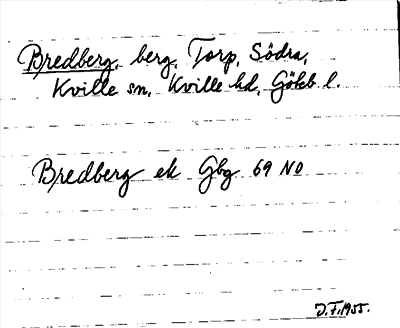 Bredberg, berg, Torp, Södra,
Kville sn, Kville hd, Göteb l.
Bredberg ek Gbg 69 NO
J.F. 1955.